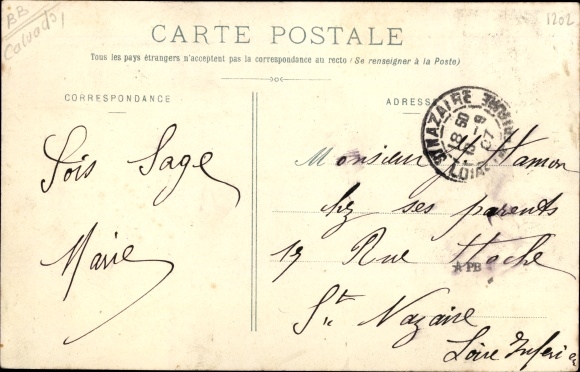 BB
Calvados
1202
CARTE POSTALE
Tous les pays étrangers n'acceptent pas la correspondance au recto (Se renseigner à la Poste)
CORRESPONDANCE
ADRESSE
Sois Sage
Marie
ST NAZAIRE
LOIRE
Monsieur Hamon
chz ses parents
19 Rue Hoche
PB
St Nazaire
Loire Inferi